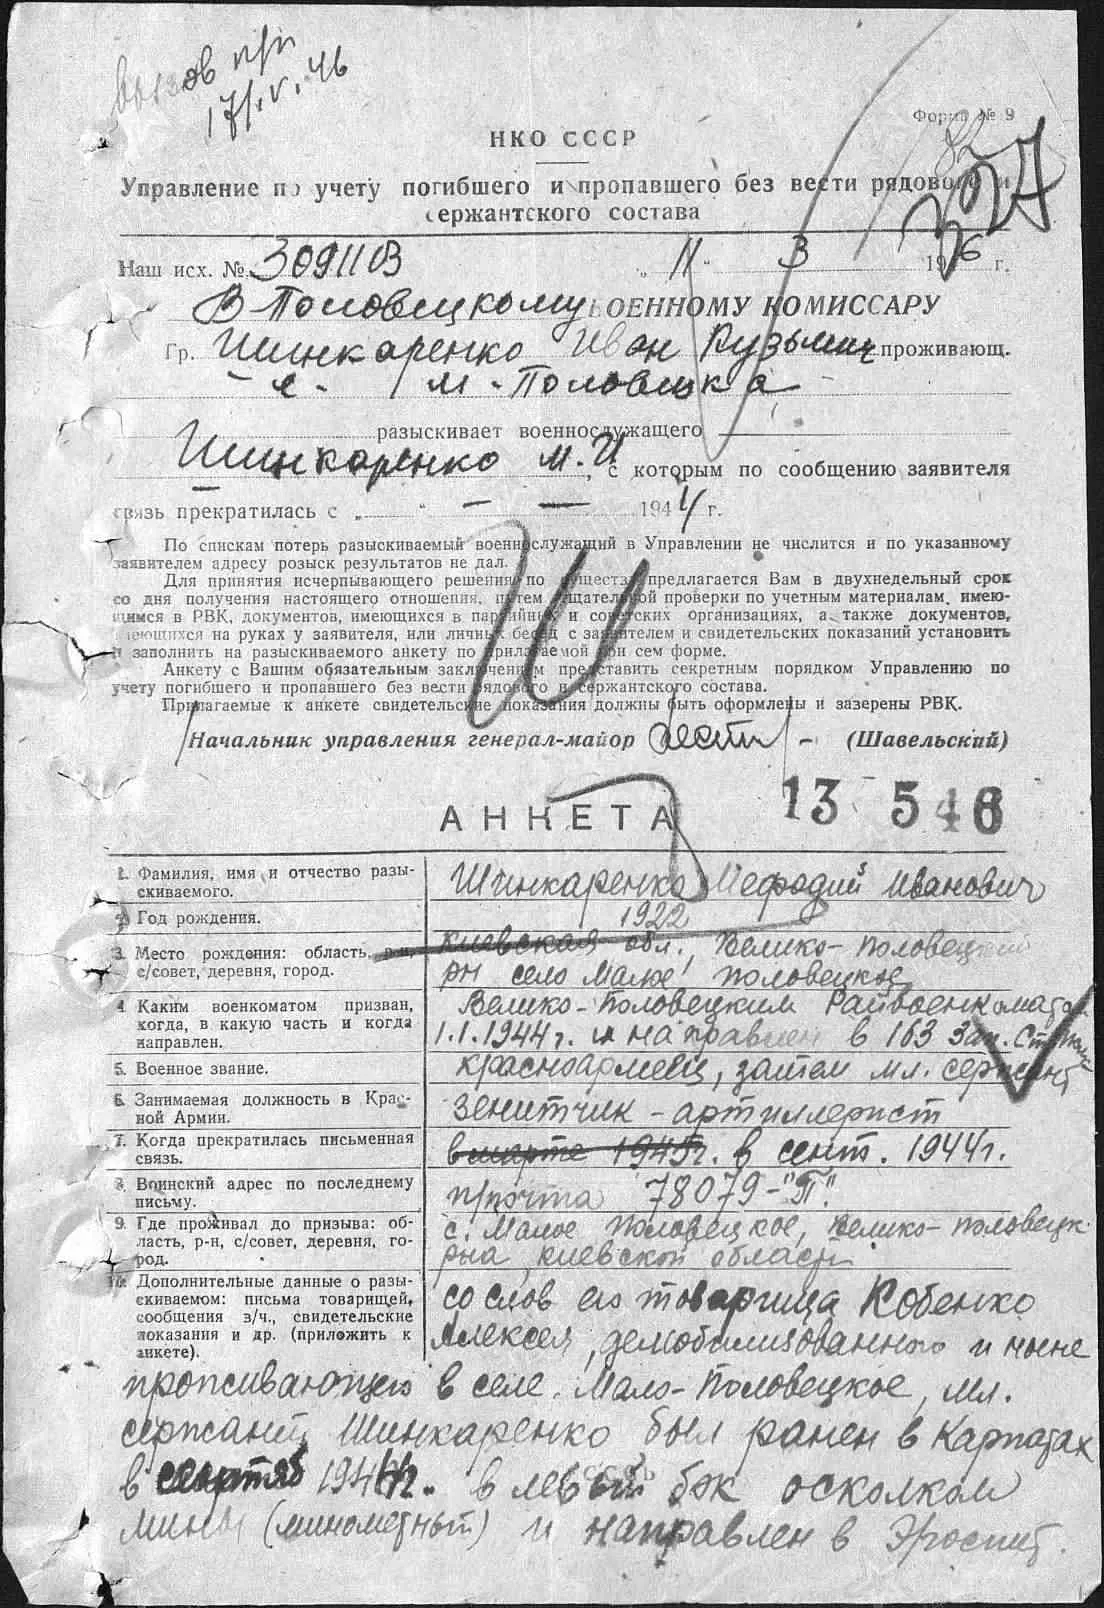 вызов п/п
17/.V.46
Форма № 9
НКО СССР
Управление по учету погибшего и пропавшего без вести рядового и
сержантского состава
Наш исх. № 309110З „ 11 “ 3 1946 г.
В-Половецкому ВОЕННОМУ КОМИССАРУ
Гр. Шинкаренко Иван Кузьмич проживающ.
- с. М-Половецка -
разыскивает военнослужащего
Шинкаренко М.И , с которым по сообщению заявителя
связь прекратилась с „ - “ - 1944 г.
По спискам потерь разыскиваемый военнослужащий в Управлении не числится и по указанному
заявителем адресу розыск результатов не дал.
Для принятия исчерпывающего решения по существу предлагается Вам в двухнедельный срок
со дня получения настоящего отношения, путем тщательной проверки по учетным материалам, имею-
щимся в РВК, документов, имеющихся в партийных и советских организациях, а также документов,
имеющихся на руках у заявителя, или личных бесед с заявителем и свидетельских показаний установить
и заполнить на разыскиваемого анкету по прилагаемой при сем форме.
Анкету с Вашим обязательным заключением представить секретным порядком Управлению по
учету погибшего и пропавшего без вести рядового и сержантского состава.
Прилагаемые к анкете свидетельские показания должны быть оформлены и заверены РВК.
Ш
Начальник управления генерал-майор (Шавельский)
АНКЕТА 13 546
1. Фамилия, имя и отчество разы-
скиваемого.
Шинкаренко Мефодий Иванович
2. Год рождения.
1922
3. Место рождения: область, р-н,
с/совет, деревня, город.
Киевская обл., Велико-Половецкий
рн село Малое Половецкое
4. Каким военкоматом призван,
когда, в какую часть и когда
направлен.
Велико-Половецким Райвоенкоматом
1.1.1944г. и направлен в 163 Зап. Стр. полк
5. Военное звание.
красноармеец, затем мл. сержант
6. Занимаемая должность в Крас-
ной Армии.
зенитчик - артиллерист
7. Когда прекратилась письменная
связь.
в марте 1945г. в сент. 1944г.
8. Воинский адрес по последнему
письму.
п/почта 78079-"П".
9. Где проживал до призыва: об-
ласть, р-н, с/совет, деревня, го-
род.
с. Малое Половецкое, Велико-Половецк.
р-на, Киевской области
10. Дополнительные данные о разы-
скиваемом: письма товарищей,
сообщения в/ч., свидетельские
показания и др. (приложить к
анкете).
со слов его товарища Кобенко
Алексея, демобилизованного и ныне
проживающего в селе Мало-Половецкое, мл.
сержант Шинкаренко был ранен в Карпатах
в 1944г. в левый бок осколком
мины (минометный) и направлен в госпит.